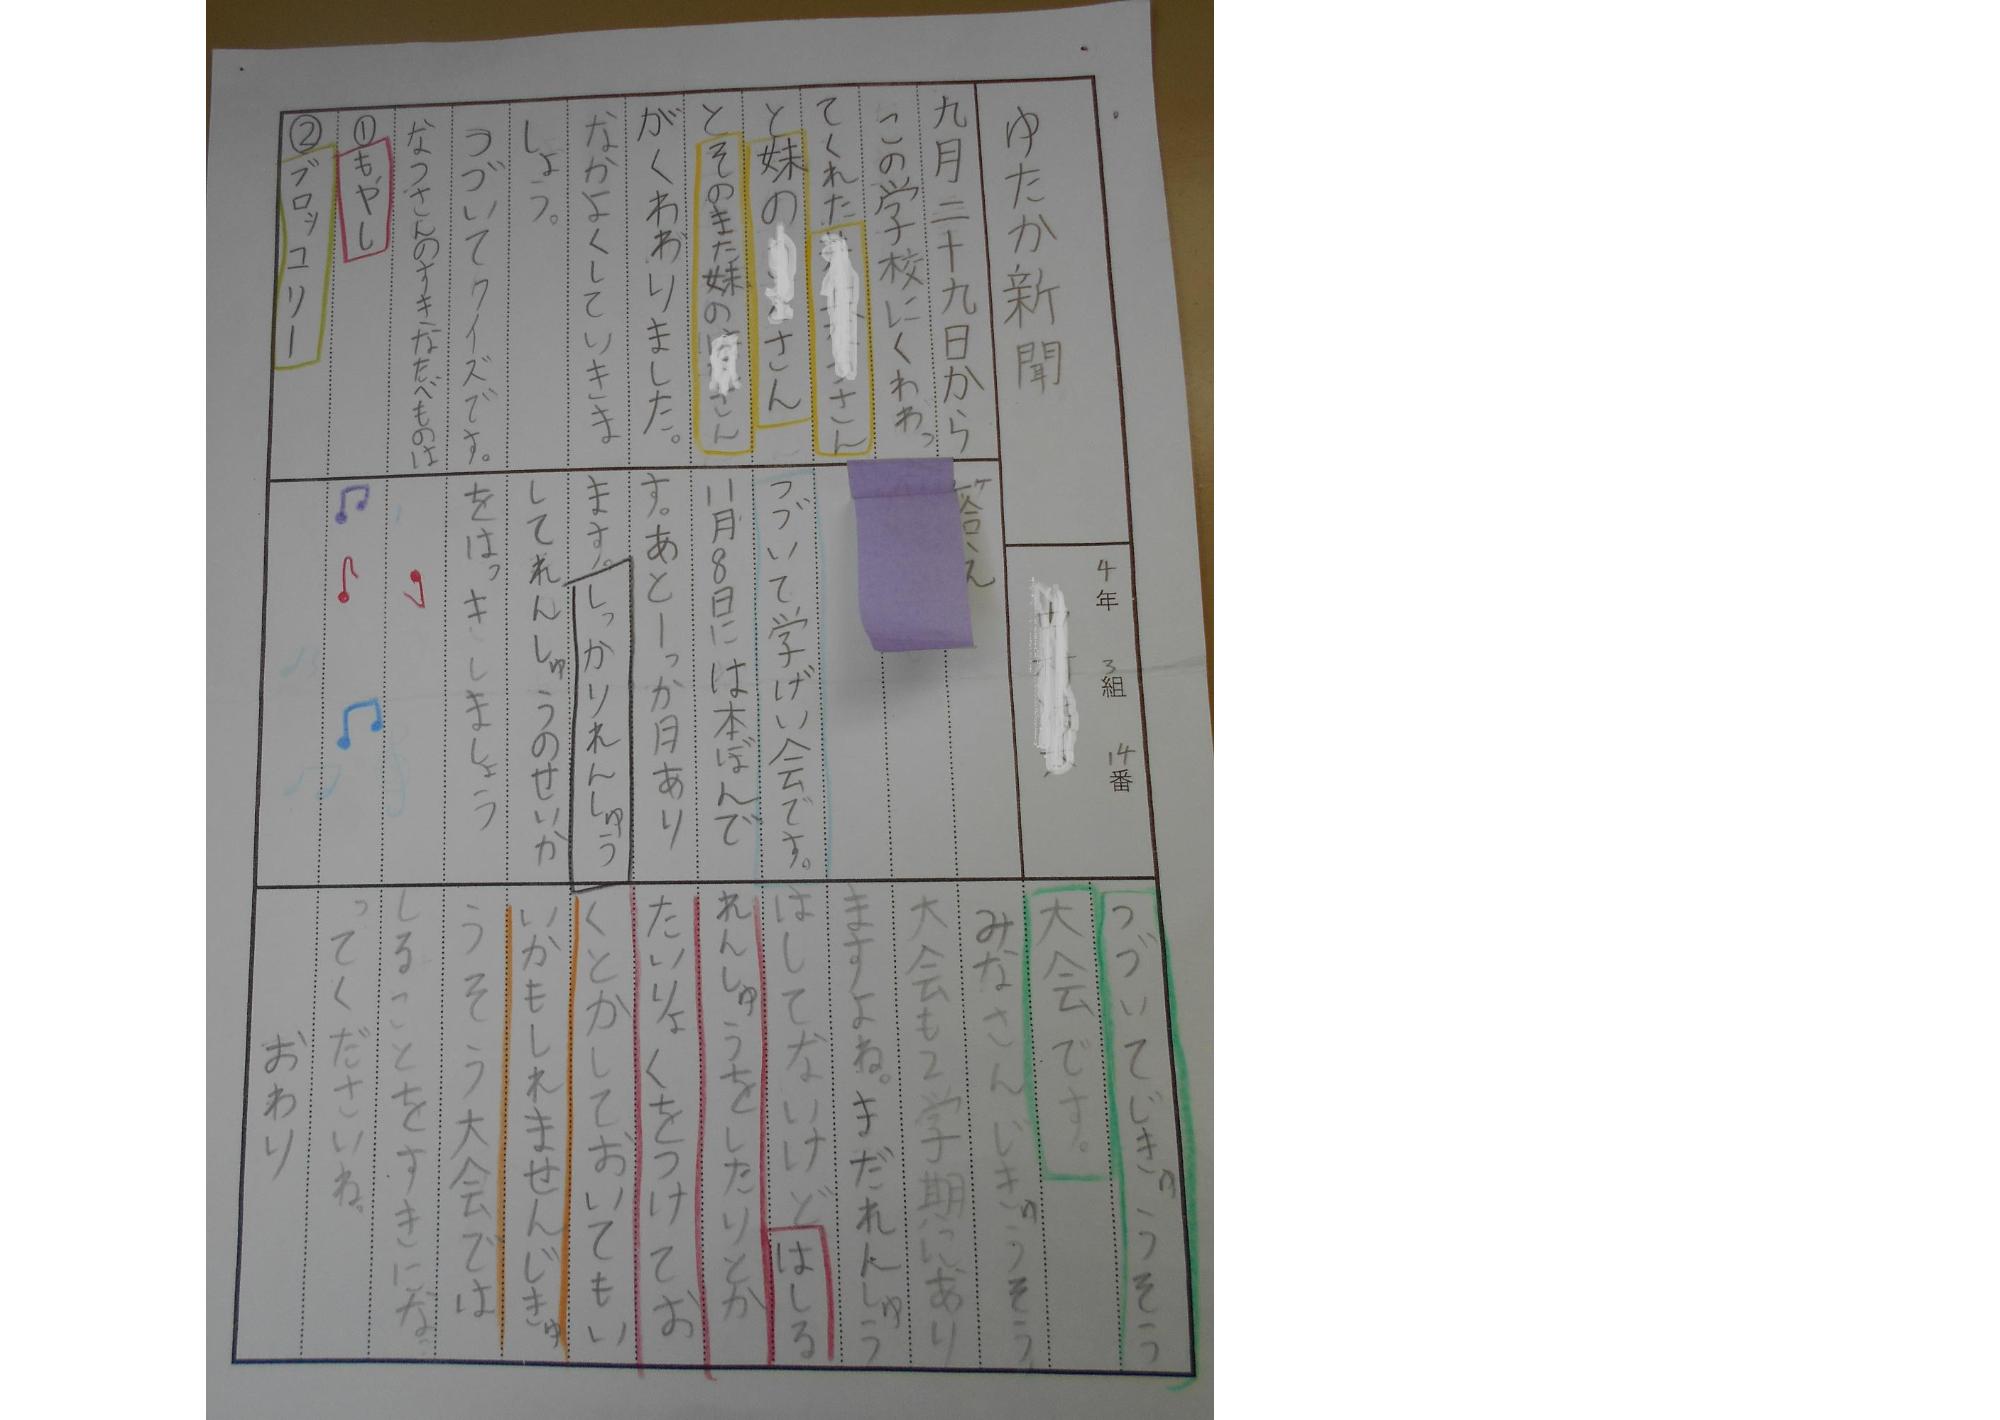 ゆたか新聞
4年 3組 14番
九月二十九日から
この学校にくわわっ
てくれた さん
と妹の さん
とそのまた妹の さん
がくわわりました。
なかよくしていきま
しょう。
つづいてクイズです。
なつさんのすきなたべものは
①もやし
②ブロッコリー
答え
つづいて学げい会です。
11月8日には本ばんで
す。あと一っか月あり
ます。しっかりれんしゅう
してれんしゅうのせいか
をはっきしましょう
つづいてじきゅうそう
大会です。
みなさんじきゅうそう
大会も2学期にあり
ますよね。まだれんしゅう
はしてないけどはしる
れんしゅうをしたりとか
たいりょくをつけてお
くとかしておいてもい
いかもしれませんじきゅ
うそう大会では
しることをすきにな
ってくださいね。
おわり